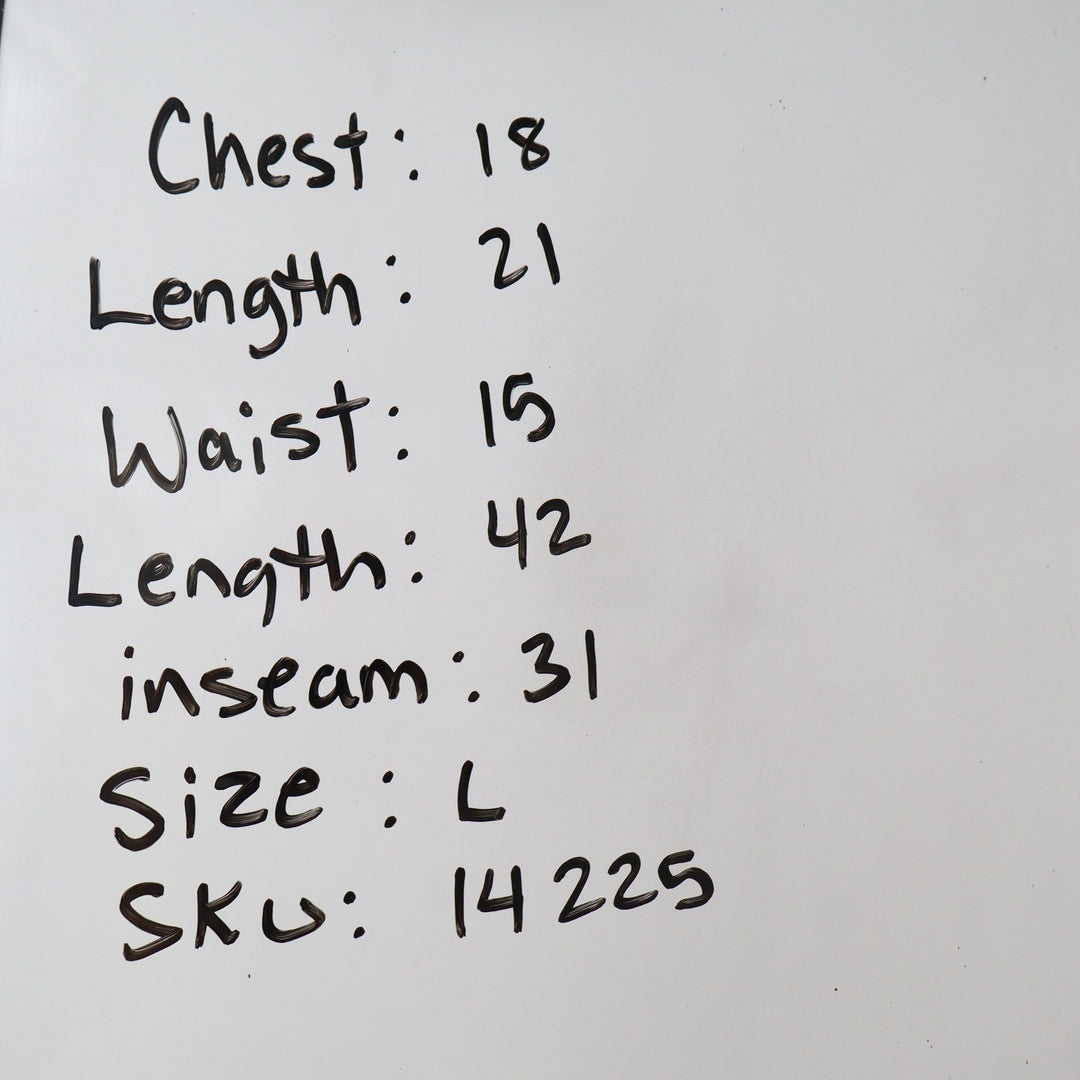 Chest: 18
Length: 21
Waist: 15
Length: 42
inseam: 31
Size: L
SKU: 14225